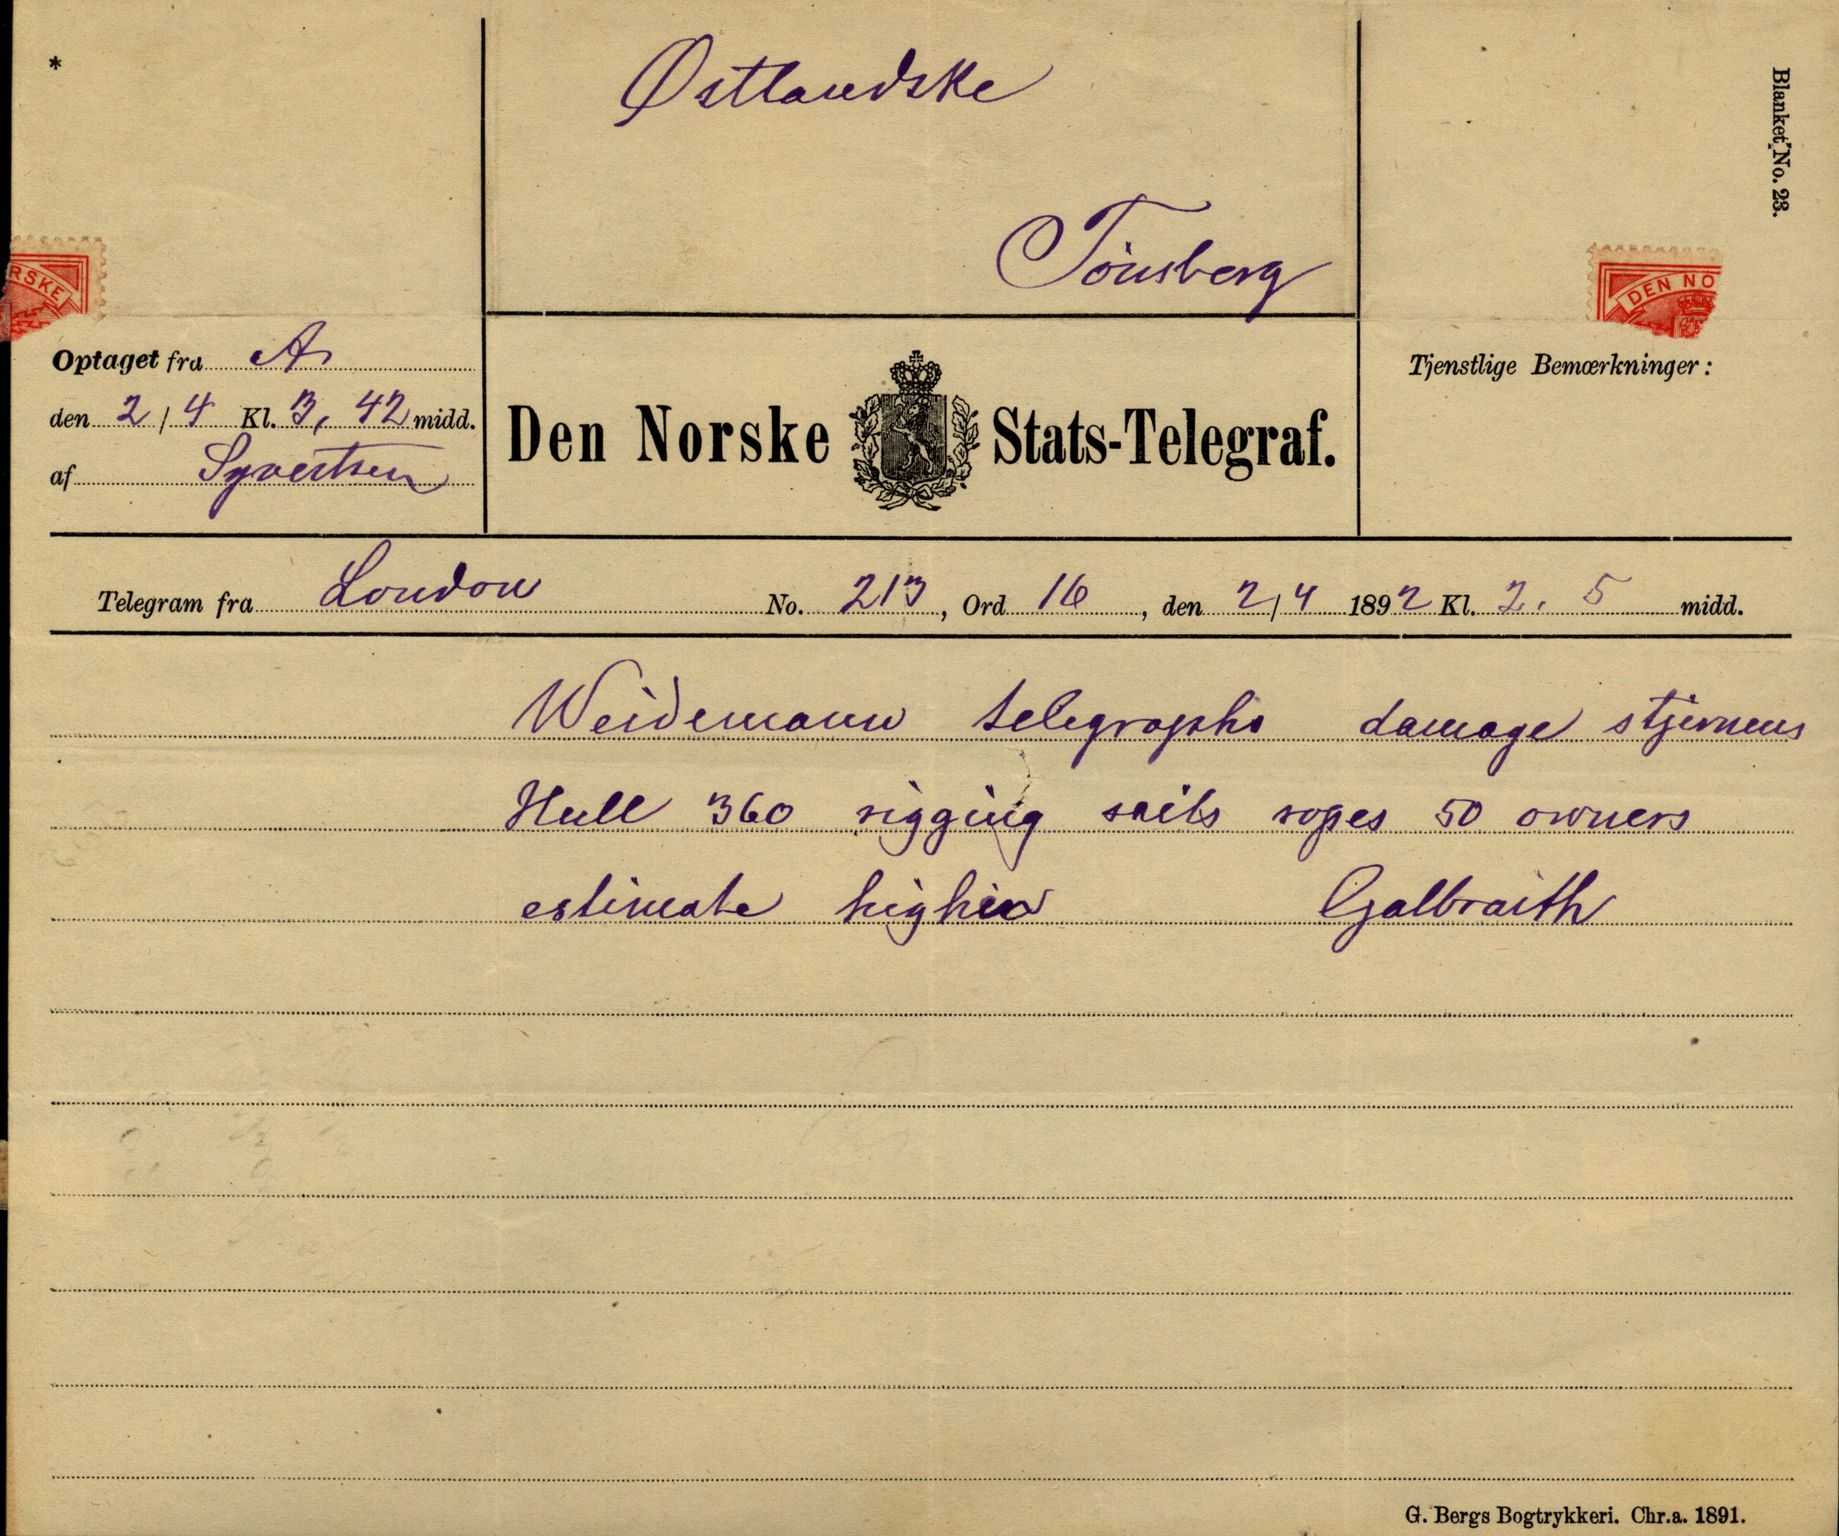 *
Østlandske
Tönsberg
Blanket No. 23.
RSKE
DEN NO
Optaget fra A
den 2/4 Kl. 3,42 midd.
af Syvertsen
Den Norske Stats-Telegraf.
Tjenstlige Bemærkninger:
Telegram fra London No. 213, Ord 16, den 2/4 1892 Kl. 2.5 midd.
Weidemann telegraphs damage stjernens
Hull 360 rigging sails ropes 50 owners
estimate higher Galbraith
G. Bergs Bogtrykkeri. Chr.a. 1891.